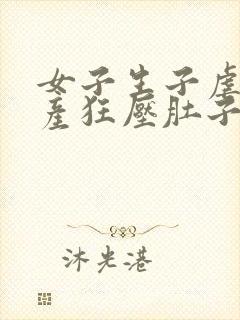 女子生子虐
產狂壓肚子
沐光港